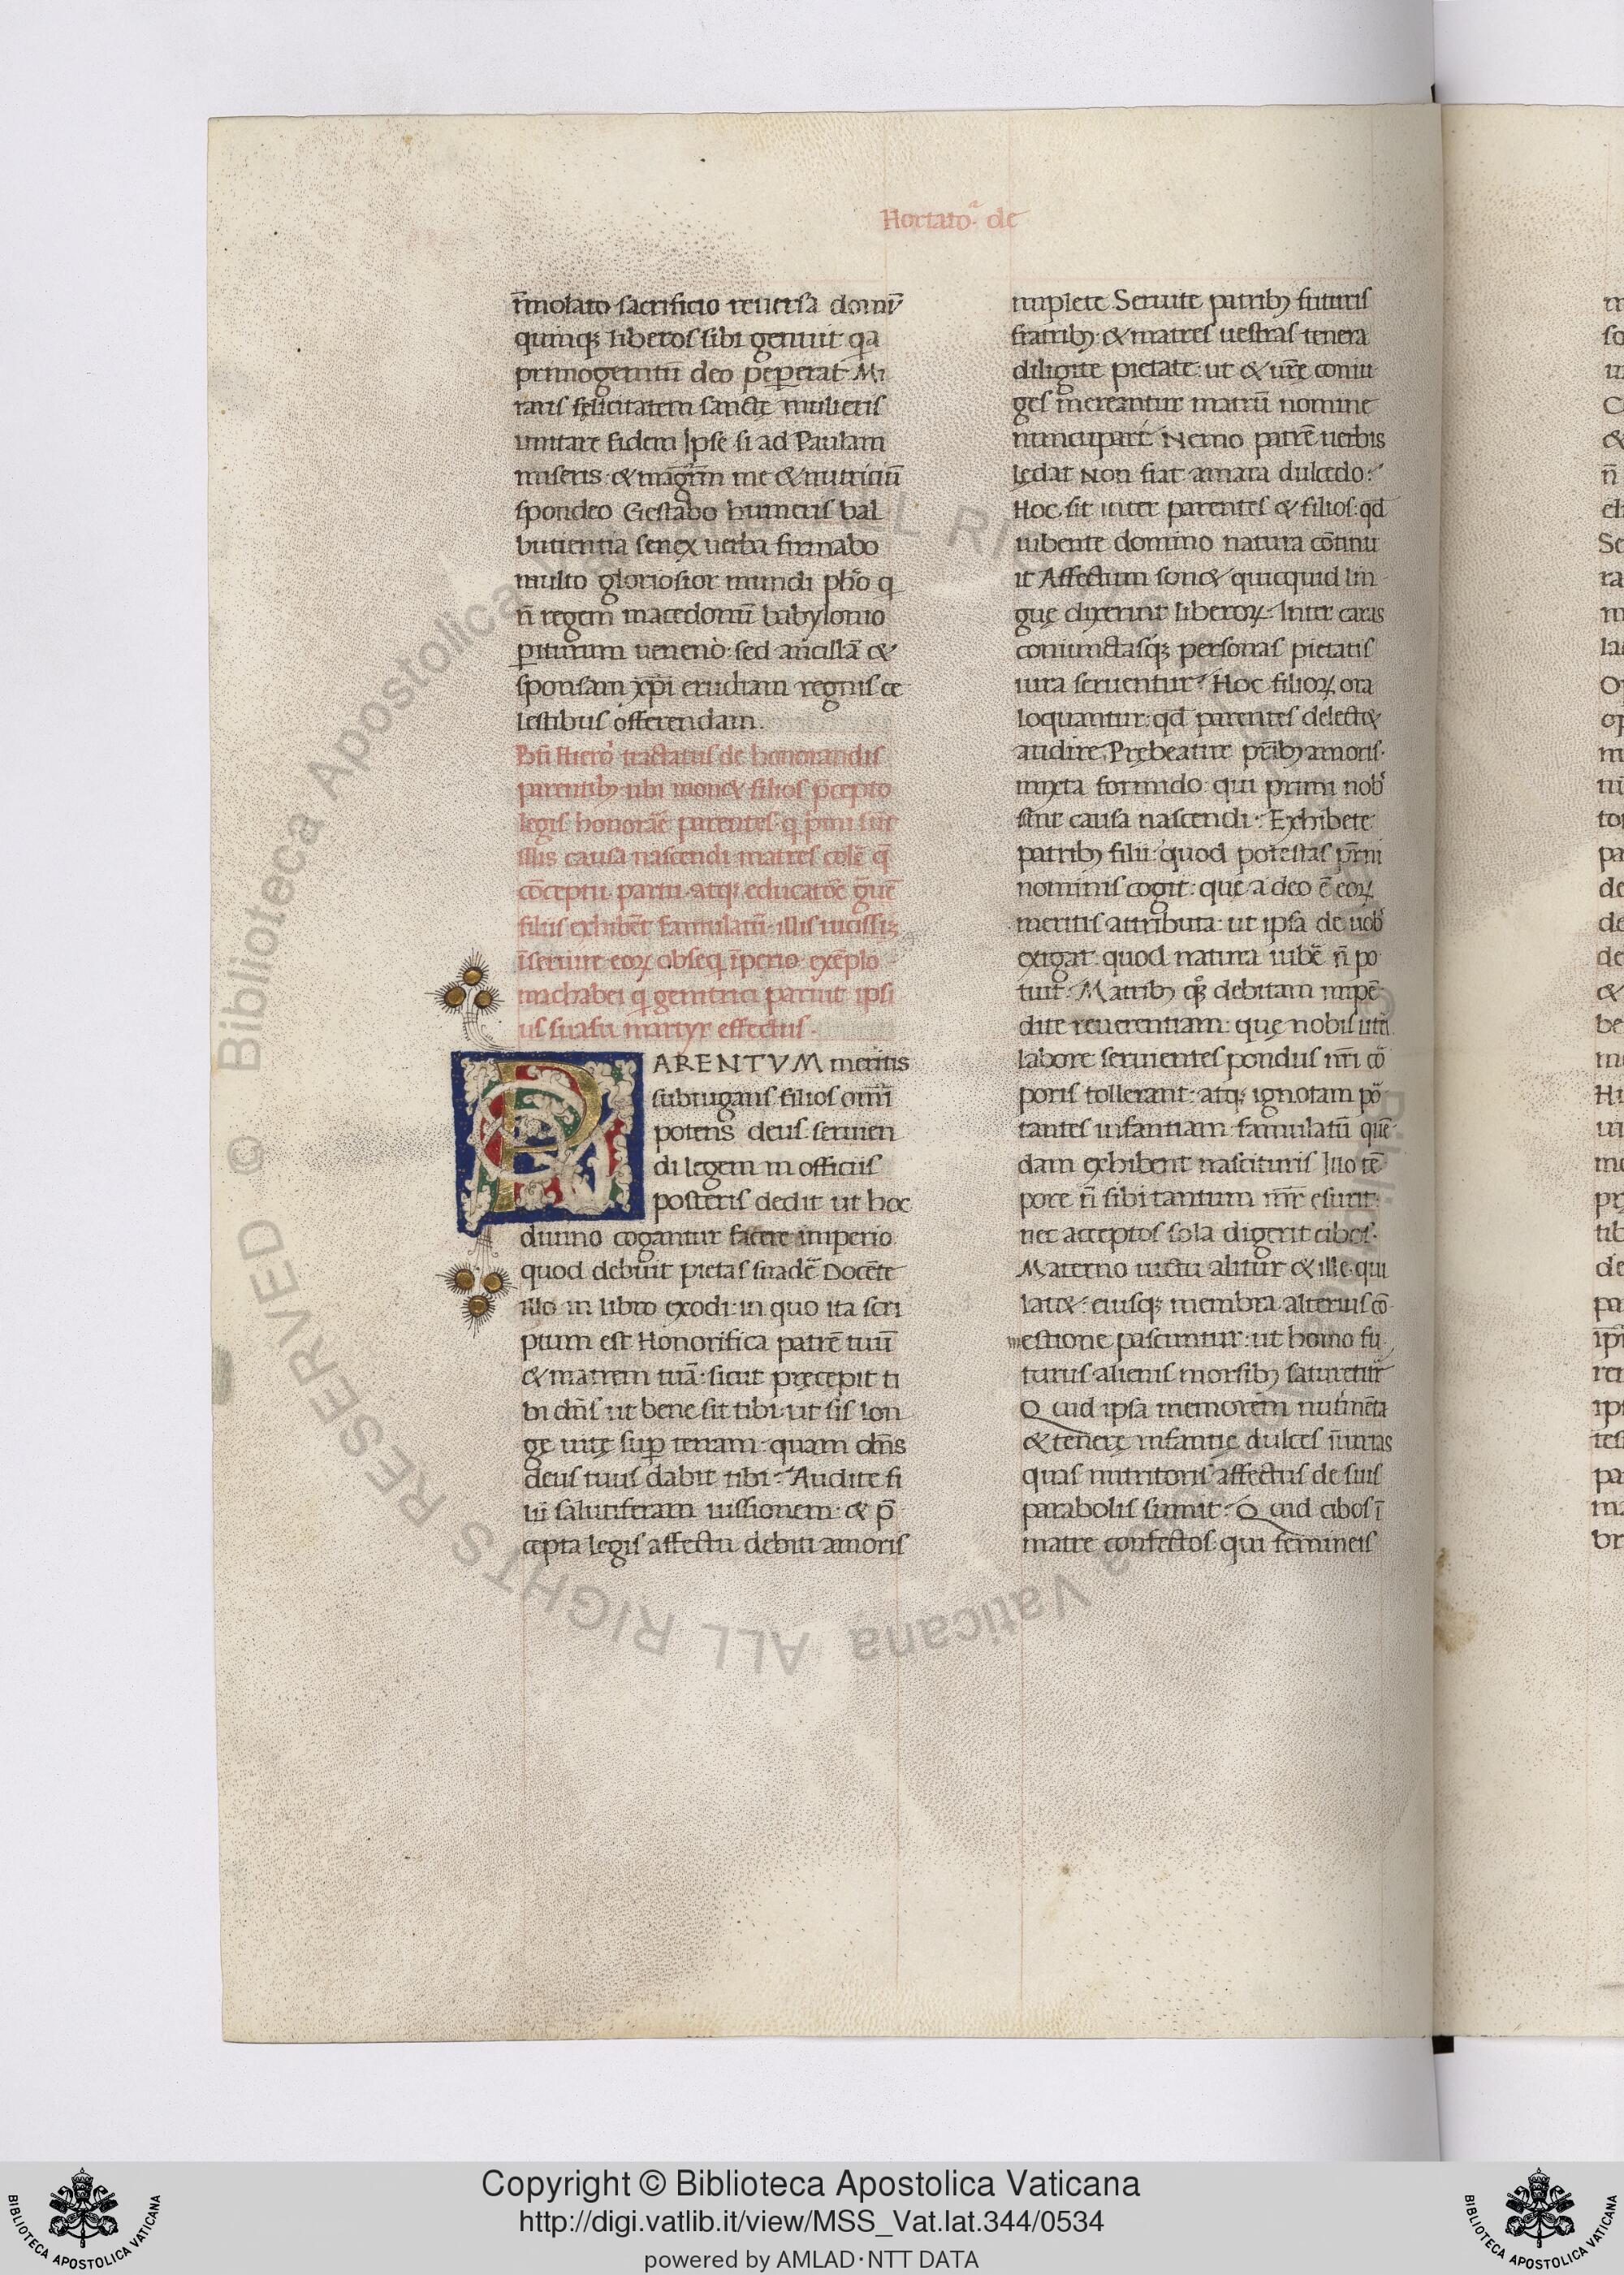 Hortatoª. de
īmolato sacrificio reuersa domū
quinq; liberos sibi genuit qa
primogenitū deo pepererat Mi
raris felicitatem sanctę mulieris
imitare fidem Ipse si ad Paulam
miseris: & magr̄m me & nutriciū
spondeo Gestabo humeris bal
butientia senex uerba firmabo
multo gloriosior mundi pho q
n̄ regem macedonū babylonio
piturum ueneno: sed ancillā &
sponsam xp̄i erudiam regnis ce
lestibus offerendam.
Bti Hiero tractatus de honorandis
parentibȝ ubi mon& filios p̄cepto
legis honorare parentes q p̄mi sūt
illis causa nascendi matres colē q̄
cōceptu partu atq; educatōe
filiis exhibēt famulatū illis uicissiȝ
īseruire eoꝝ obseq īperio exēplo
machabei q genitrici paruit ipsi
us suasu martyr effectus.
PARENTVM meritis
subiugans filios omī
potens deus seruien
di legem in officiis
posteris dedit ut hoc
diuino cogantur facere imperio
quod debuit pietas suadē Docēte
illo in libro exodi: in quo ita scri
ptum est Honorifica patrē tuū
& matrem tuā: sicut pręcepit ti
bi dn̄s ut bene sit tibi ut sis lon
gę uitę sup terram: quam dn̄s
deus tuus dabit tibi: Audite fi
lii salutiferam iussionem: & p̄
cepta legis affectu debiti amoris
implete Seruite patribȝ futuris
fratribȝ & matres uestras tenera
diligite pietate: ut & ur̄e coniu
ges mereantur matrū nomine
nuncupari Nemo patrē uerbis
lędat Non fiat amara dulcedo:
Hoc sit inter parentes & filios: qd
iubente domino natura cōtinu
it Affectum son& quicquid lin
guę dixerint liberoꝝ Inter caras
coniunctasq; personas pietatis
iura seruentur Hoc filioꝝ ora
loquantur: qd parentes delect&
audire Prębeatur pr̄ibȝ amoris
mixta formido qui primi nob
sunt causa nascendi: Exhibete
patribȝ filii: quod potestas pr̄ni
nominis cogit: que a deo ē eoꝝ
meritis attributa: ut ipsa de uob
exigat quod natura iubē n̄ po
tuit: Matribȝ q; debitam impē
dite reuerentiam: quę nobis
labore seruientes pondus nr̄i cō
poris tollerant: atq; ignotam pō
tantes infantiam famulatū quē
dam exhibent nascituris Illo tē
pore n̄ sibi tantum mr̄ esurit
nec acceptos sola digerit cibos.
Materno uictu alitur & ille qui
lat&: eiusq; membra alterius cō
mestione pascuntur: ut homo fu
turus alienis morsibȝ saturetur
Quid ipsa memorem nutimēta
& tenerę infantię dulces iniurias
quas nutritoris affectus de suis
parabolis sumit: Quid cibos ī
matre confectos: qui femineis
Copyright © Biblioteca Apostolica Vaticana
http://digi.vatlib.it/view/MSS_Vat.lat.344/0534
powered by AMLAD·NTT DATA